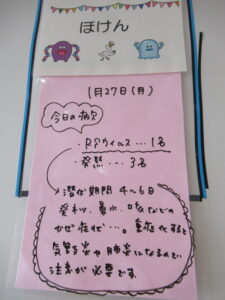 ほけん
1月27日(月)
今日の病欠
・RSウイルス…1名
・発熱…3名
潜伏期間 4〜6日
発ネツ、鼻水、咳などの
かぜ症状…。重症化すると
気管支炎や肺炎になるので
注意が必要です。